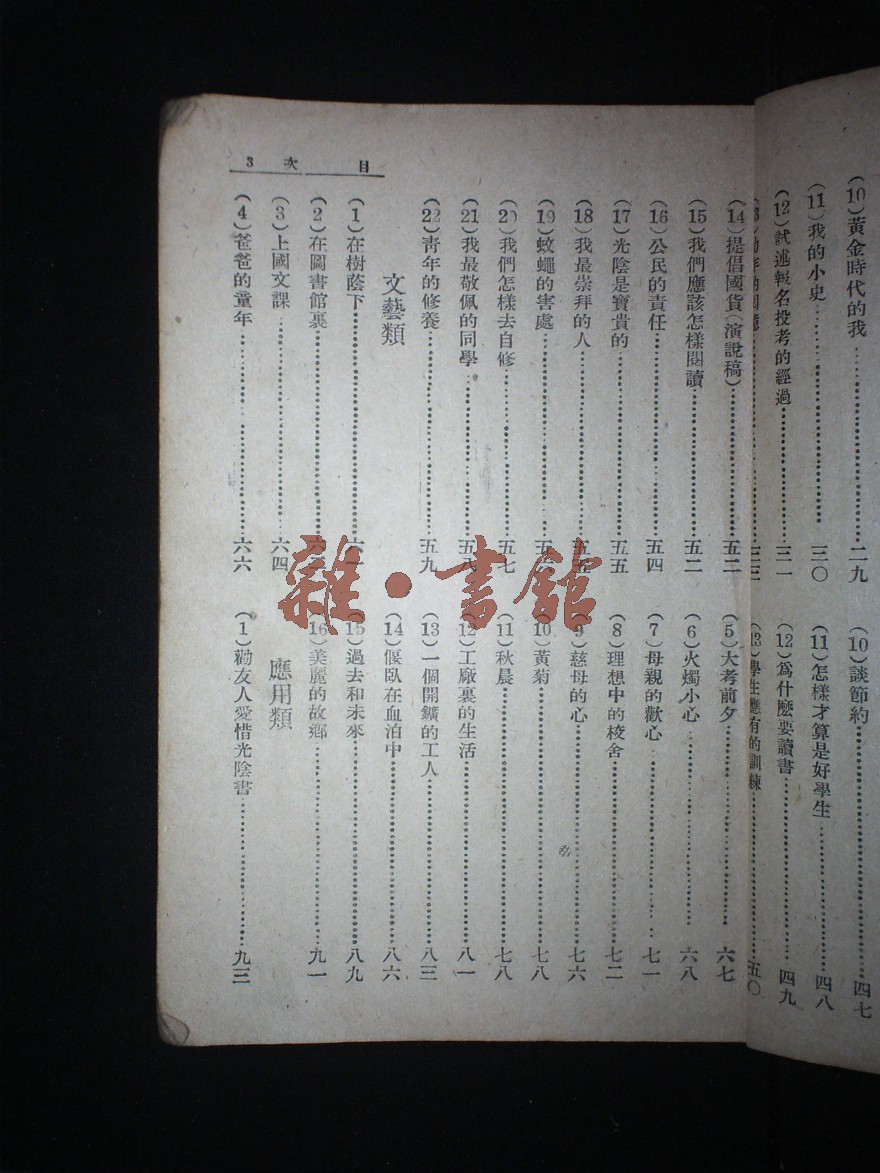 (10)黃金時代的我……二九
(11)我的小史……三〇
(12)試述報名投考的經過……三一
(10)談節約……四七
(11)怎樣才算是好學生……四八
(12)爲什麽要讀書……四九
(13)學生應有的訓練……五〇
目 次 3
(14)提倡國貨(演說稿)……五二
(15)我們應該怎樣閱讀……五二
(16)公民的責任……五四
(17)光陰是寶貴的……五五
(18)我最崇拜的人……
(19)蚊蠅的害處……
(20)我們怎樣去自修……五七
(21)我最敬佩的同學……五八
(22)靑年的修養……五九
文藝類
(1)在樹蔭下……
(2)在圖書館裏……
(3)上國文課……六四
(4)爸爸的童年……六六
(5)大考前夕……六七
(6)火燭小心……六八
(7)母親的歡心……七一
(8)理想中的校舍……七二
(9)慈母的心……七六
(10)黃菊……七八
(11)秋晨……七八
(12)工廠裏的生活……八一
(13)一個開鑛的工人……八三
(14)偃臥在血泊中……八六
(15)過去和未來……八九
(16)美麗的故鄉……九一
應用類
(1)勸友人愛惜光陰書……九三
雜·書館